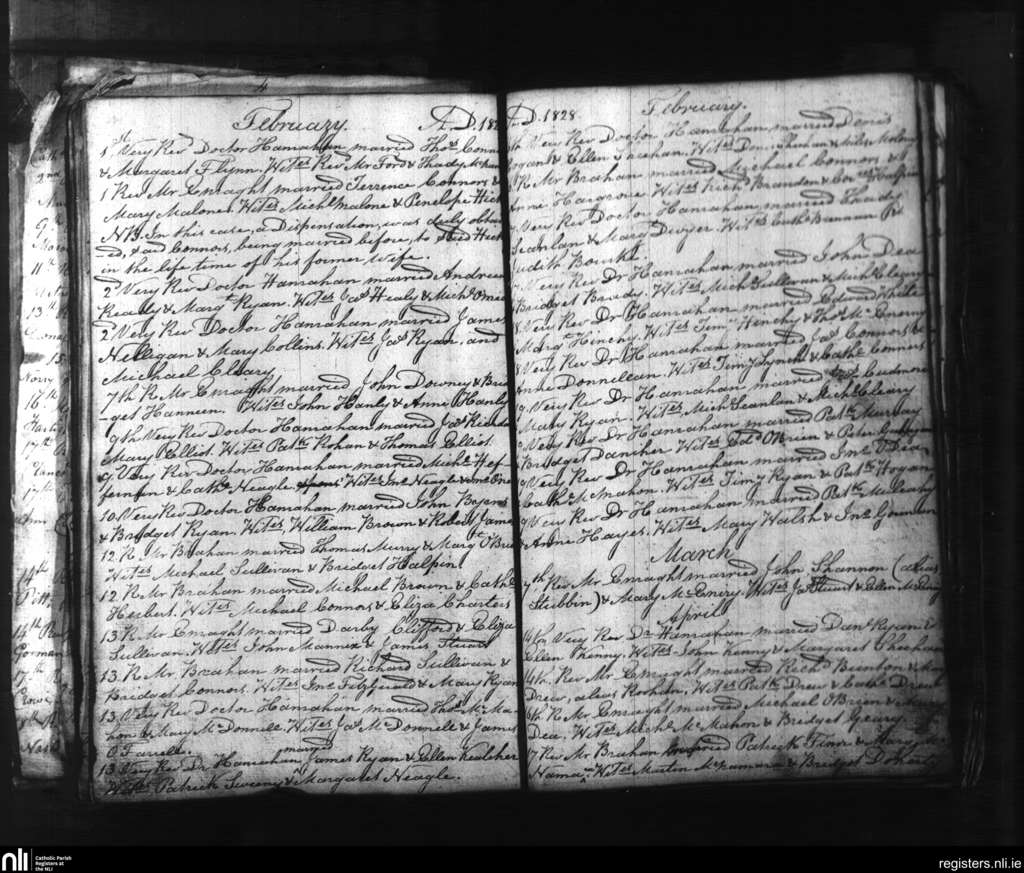 February. A.D. 182
1st Very Revd Doctor Hanrahan married Thos. Connors
& Margaret Flynn. Wit.es Revd Mr Ford & Thady McNam
1 Revd Mr Enraght married Terrence Connors &
Mary Malone. Wit.es Michl. Malone & Penelope Hick
NB. In this case, a Dispensation, was duly obtain
=ed, said Connors, being married before, to Hick
in the life time of his former Wife.
2 Very Revd Doctor Hanrahan married Andrew
Kealy & Margt. Ryan. Wit.es Jas. Healy & Michl. Omeara
2 Very Revd Doctor Hanrahan married James
Hilligan & Mary Collins. Wit.es Jas. Ryan, and
Michael Cleary.
7th R. Mr Enraght married John Downey & Brid
get Hanneen. Wit.es John Hanly & Anne Hanly
9th Very Revd Doctor Hanrahan married Jas. Richards
Mary Elliot. Wit.es Patk. Kohan & Thomas Elliot
9 Very Revd Doctor Hanrahan married Michl. Hef
fernan & Cathe. Neagle. Wit.es Jno. Neagle &
10. Very Revd Doctor Hanrahan married John
& Bridget Ryan. Wit.es William Brown & Robert James
12. R. Mr Brahan married Thomas Murry & Margt. O'Brien
Wit.es Michael Sullivan & Bridget Halpin
12 R. Mr Brahan married Michael Brown & Cathe.
Herbert. Wit.es Michael Connors & Eliza Charters
13. R. Mr Enraght married Darby Clifford & Eliza
Sullivan. Wit.es John Mannix & James Stuart
13. R. Mr Brahan married Richard Sullivan &
Bridget Connors. Wit.es Jno. Fitzgerald & Mary Ryan
13. Very Revd Doctor Hanrahan married Thos. McMa
hon & Mary McDonnell. Wit.es Jas. McDonnell & James
O Farrell.
13 Very Revd Dr. Hanrahan married James Ryan & Ellen Kealeher
Wit.es Patrick Sweeny & Margaret Neagle.
A.D. 1828 February.
th Very Revd Doctor Hanrahan married Denis
Hogan & Ellen Sheahan. Wit.es Den. Sheahan & Miles Molony
R. Mr Brahan married Michael Connors &
Anne Hargrove. Wit.es Richd. Brandon & Halpin
Very Revd Doctor Hanrahan married Thady
Scanlan & Mary Dwyer. Wit.es Cathe. Brennan &
Judith Bourke.
7 Very Revd Dr Hanrahan married John Dea
Bridget Brady. Wit.es Michl. Sullivan & Michl. Cleary
8 Very Revd Dr. Hanrahan married Edward White
Margt. Hinchy. Wit.es Timy. Hinchy & Thos. McEnerny
8 Very Revd Dr Hanrahan married Jas. Connors &
Anne Donnellan. Wit.es Timy. Lynch & Cathe. Connors
9. Very Revd Dr Hanrahan married Cudmore
Mary Ryan. Wit.es Michl. Scanlan & Michl. Cleary
9 Very Revd Dr Hanrahan married Patk. Murray
Bridget Danaher. Wit.es Edd. O'Brien & Peter
9 Very Revd Dr Hanrahan married Jno. O'Dea
Cathe. McMahon. Wit.es Timy. Ryan & Patk. Hogan
9 Very Revd Dr Hanrahan married Patk. Mulcahy
Anne Hayes. Wit.es Mary Walsh & Jno. Gorman
March
7th Revd Mr. Enraght married John Shannon (alias
Stubbin) & Mary McEnery. Wit.es Jas. Stuart & Ellen McEnery
April
14th Very Revd Dr Hanrahan married Danl. Ryan &
Ellen Kenny. Wit.es John Kenny & Margaret Cheehan
14th. Revd Mr. Enraght married Richd. Bunton & Mary
Drew, alias Kohan. Wit.es Patk. Drew & Cathe. Drew
16th R. Mr Enraght married Michael O'Brien & Mary
Dea. Wit.es Michl. McMahon & Bridget Geary.
17 Revd Mr. Brahan married Patrick Finn & Mary Mc
Nama. Wit.es Martin McNamara & Bridget Doherty
nli
Catholic Parish
Registers at
the NLI
registers.nli.ie